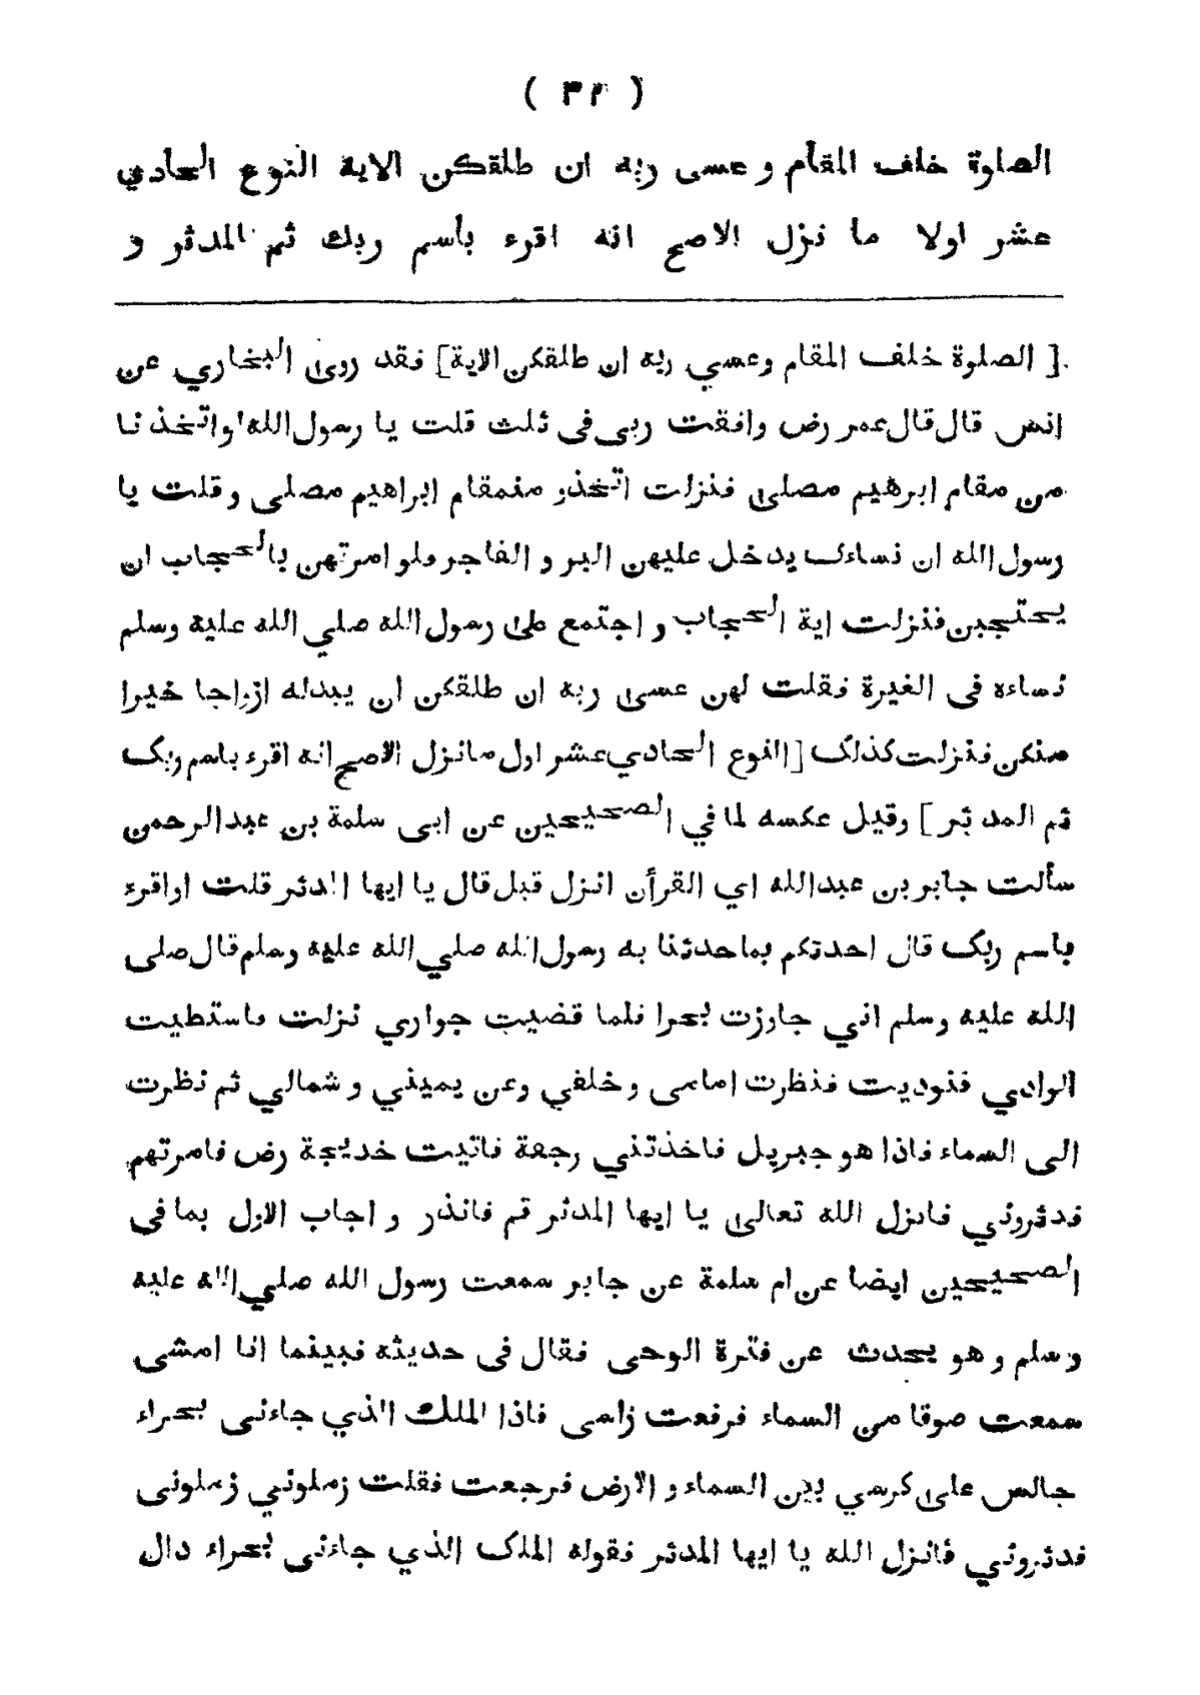 ( ٣٢ )
الصلوة خلف المقأم و عسى ربه ان طلقكن الاية النوع الحأدي
عشر اولا ما نزل الاصح انه اقرء بأسم ربك ثم المدثر و
[ الصلوة خلف المقام وعسي ربه ان طلقكن الاية] فقد روى البخاري عن
انس قال قال عمر رض وافقت ربي في ثلث قلت يا رسول الله لواتخذنا
من مقام ابرهيم مصلى فنزلت اتخذو منمقام ابراهيم مصلى وقلت يا
رسول الله ان نساءك يدخل عليهن البر و الفاجر فلو امرتهن بالحجاب ان
يحتجبن فنزلت اية الحجاب و اجتمع على رسول الله صلي الله علية وسلم
نساءه فى الغيرة فقلت لهن عسى ربه ان طلقكن ان يبدله ازواجا خيرا
منكن فنزلت كذلك [النوع الحادي عشر اول مانزل الاصح انه اقرء باسم ربك
ثم المدثر] وقيل عكسه لما في الصحيحين عن ابى سلمة بن عبد الرحمن
سألت جابر بن عبدالله اي القرأن انزل قبل قال يا ايها المدثر قلت اواقرء
باسم ربك قال احدتكم بماحدثنا به رسول الله صلي الله عليه وسلم قال صلى
الله عليه وسلم اني جاورت بحرا فلما قضيت جواري نزلت فاستطيت
الوادي فنوديت فنظرت امامى وخلفي وعن يميني و شمالي ثم نظرت
الى السماء فاذا هو جبريل فاخذتني رجفة فاتيت خديجة رض فامرتهم
فدثروني فانزل الله تعالى يا ايها المدثر قم فانذر و اجاب الاول بما فى
الصحيحين ايضا عن ام سلمة عن جابر سمعت رسول الله صلي الله عليه
وسلم وهو يحدث عن فترة الوحى فقال فى حديثه فبينما انا امشى
سمعت صوتا من السماء فرفعت راسى فاذا الملك الذي جاءنى بحراء
جالس على كرسي بين السماء و الارض فرجعت فقلت زملوني زملونى
فدثروني فانزل الله يا ايها المدثر فقوله الملك الذي جاءنى بحراء دال